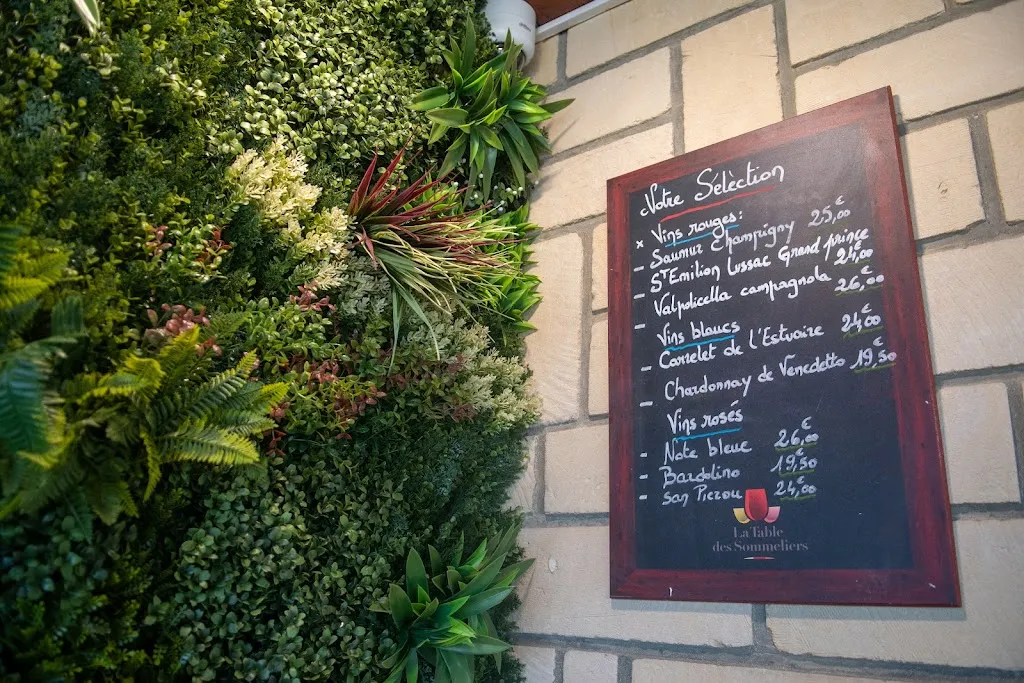 Notre Sélèction
x Vins rouges:
- Saumur Champigny 25,00€
- St Emilion Lussac Grand prince
24,00€
- Valpolicella campagnola 26,00€
Vins blancs
- Carrelet de l'Estuaire 24,00€
- Chardonnay de Venedetto 19,50€
Vins rosés
- Note bleue 26,00€
- Bardolino 19,50€
- San Pierou 24,00€
La Table
des Sommeliers